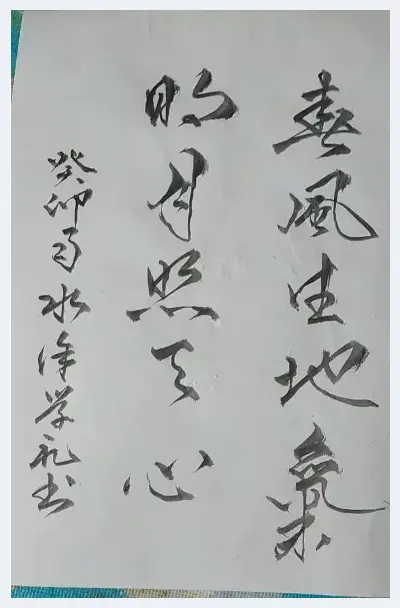 春風生地氣
明月照天心
癸卯雨水徐学礼书